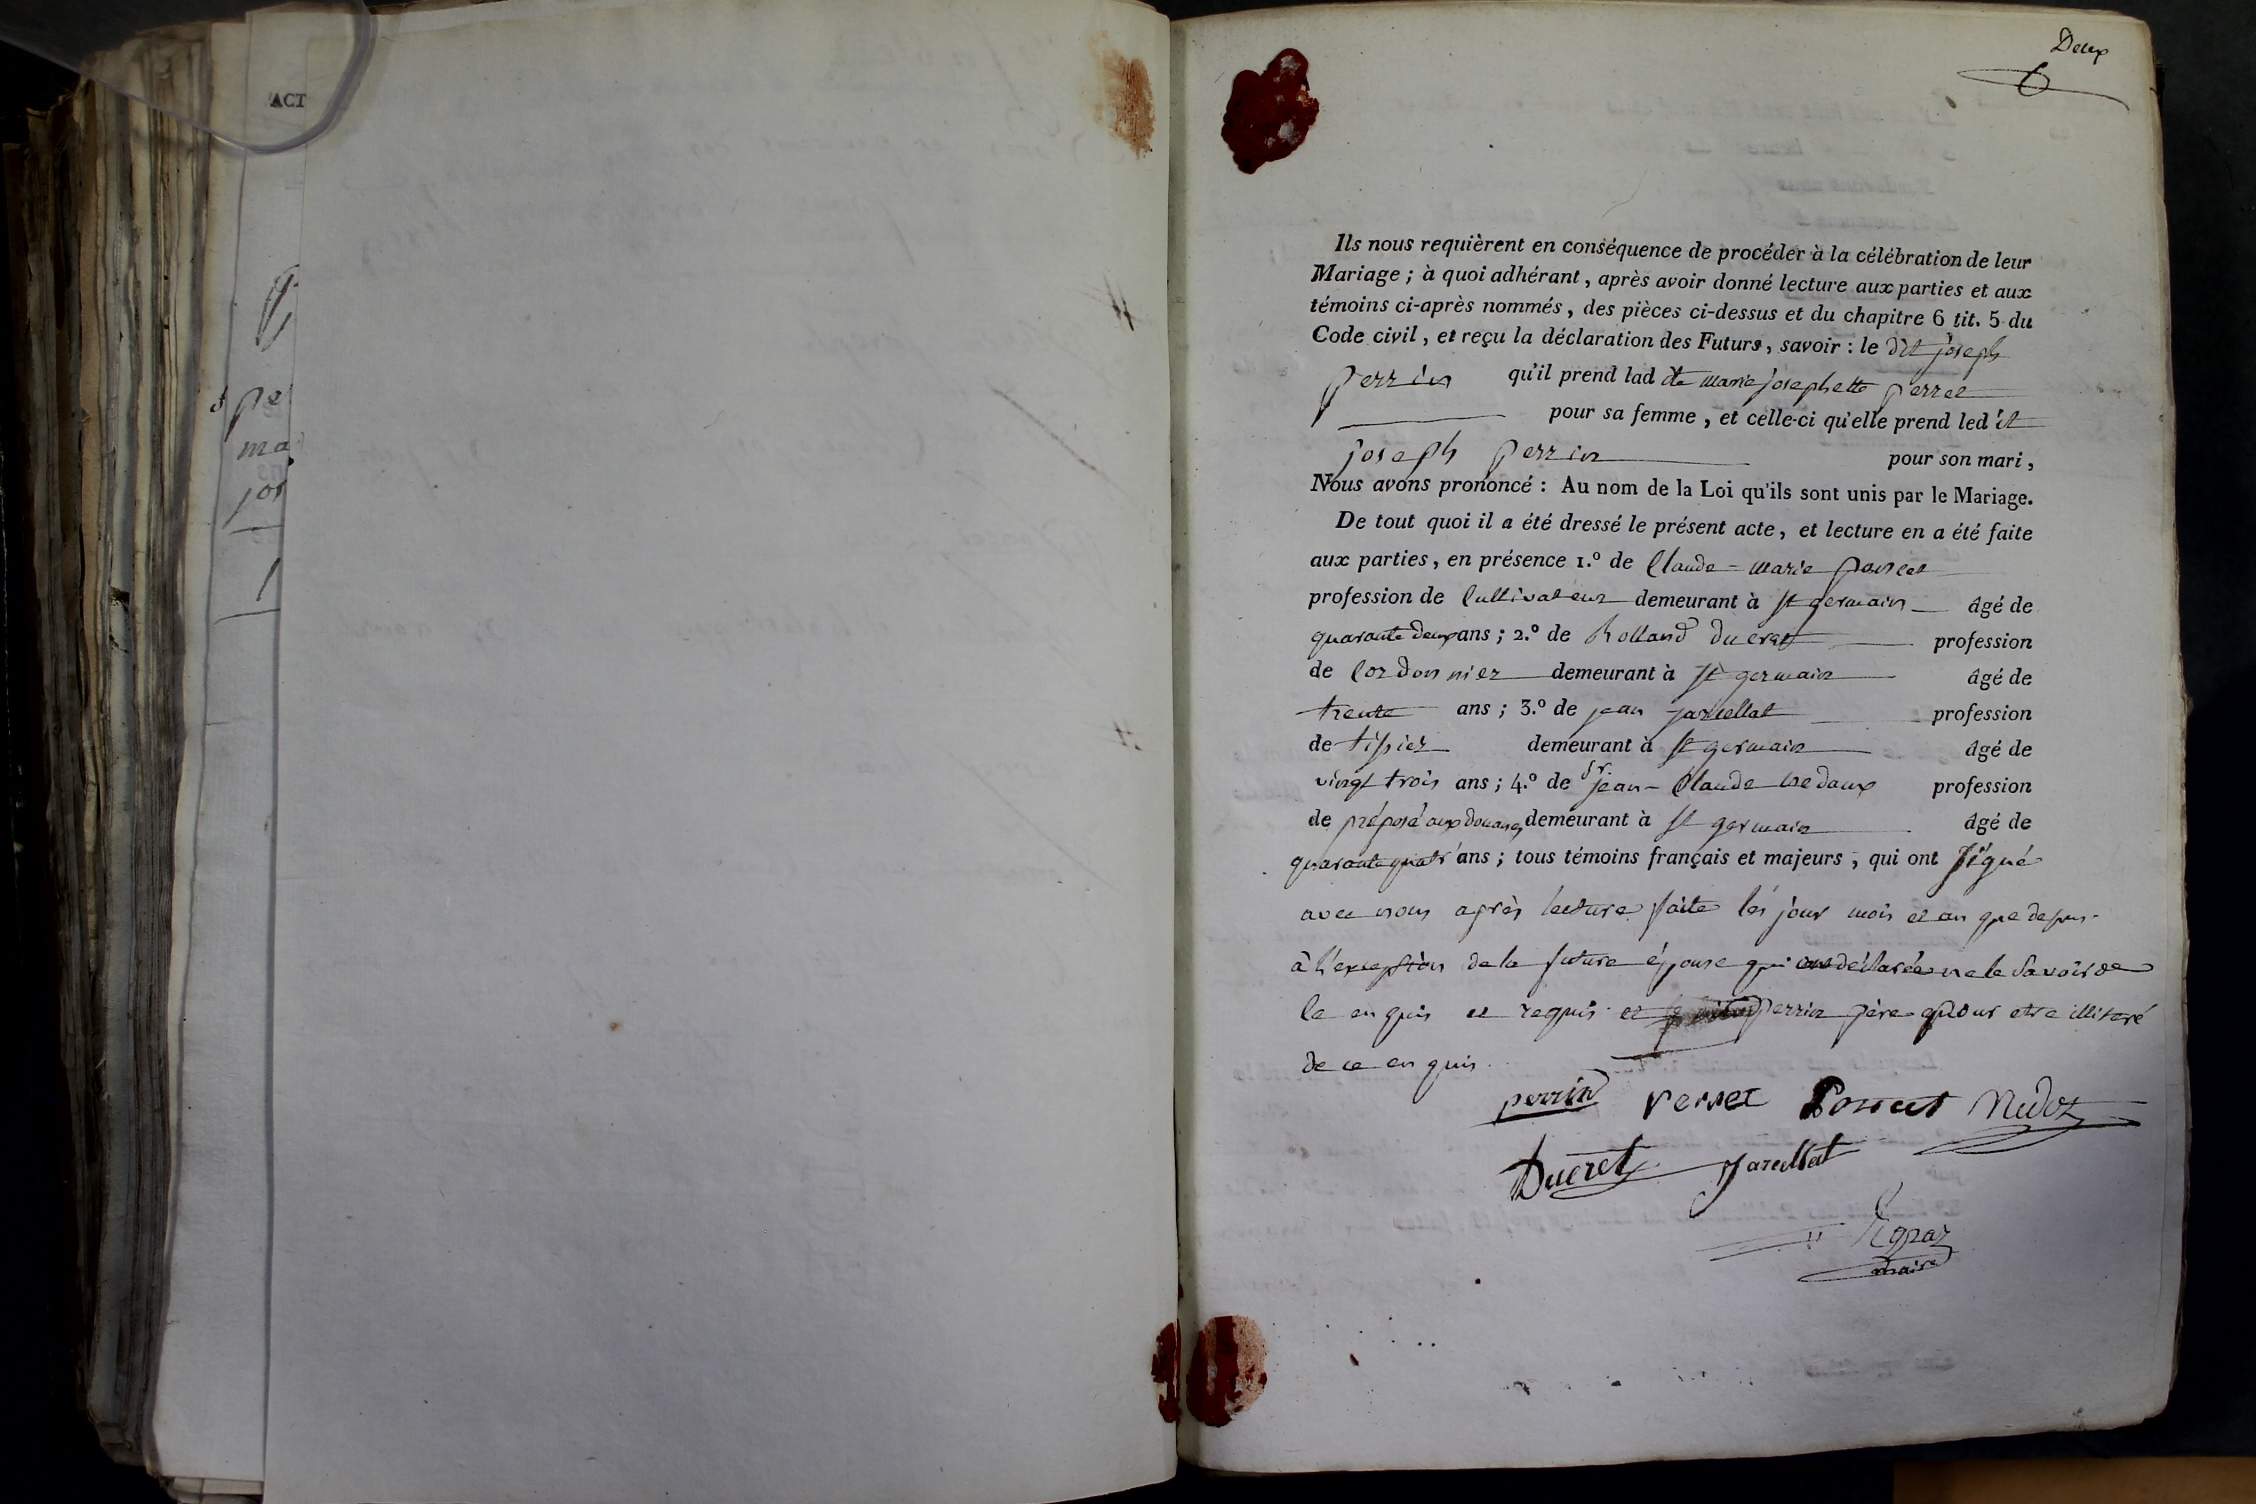 ACT
pe
ma
jos
Deux
Ils nous requièrent en conséquence de procéder à la célébration de leur
Mariage ; à quoi adhérant, après avoir donné lecture aux parties et aux
témoins ci-après nommés, des pièces ci-dessus et du chapitre 6 tit. 5 du
Code civil, et reçu la déclaration des Futurs, savoir : le dit joseph
perrin qu'il prend lad te marie josephette
pour sa femme, et celle-ci qu'elle prend led it
joseph perrin pour son mari,
Nous avons prononcé : Au nom de la Loi qu'ils sont unis par le Mariage.
De tout quoi il a été dressé le présent acte, et lecture en a été faite
aux parties, en présence 1.º de Claude - marie poncet
profession de Cultivateur demeurant à st germain âgé de
quarante deux ans ; 2.º de Rolland ducret profession
de Cordonnier demeurant à st germain âgé de
trente ans ; 3.º de jean jarcellat profession
de tissier demeurant à st germain âgé de
vingt trois ans ; 4.º de sr jean - Claude profession
de préposé aux douanes demeurant à st germain âgé de
quarante quatr' ans ; tous témoins français et majeurs, qui ont signé
avec nous après lecture faite les jour mois et an que dessus
à l'exception de la future épouse qui déclarée ne le savoir de
ce en quis et requis et perrin père pour etre illiteré
de ce en quis
perrin Poncet
Ducret Jarcellat
maire